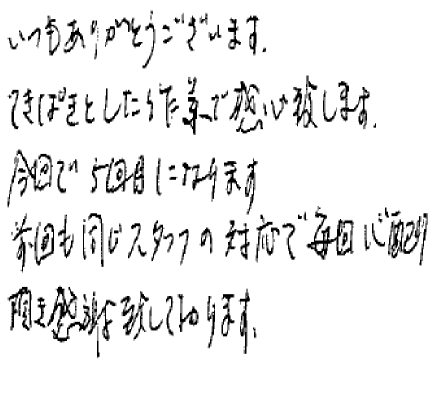 いつもありがとうございます。
てきぱきとした作業で感心致します。
今回で5回目になります
前回も同じスタッフの対応で毎回心配り
頂き感謝致しております。